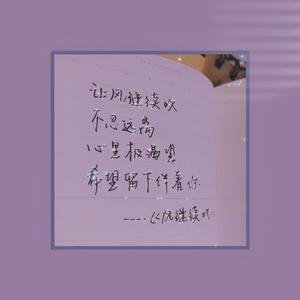 让风继续吹
不忍远离
心里极渴望
希望留下伴着你
——《风继续吹》